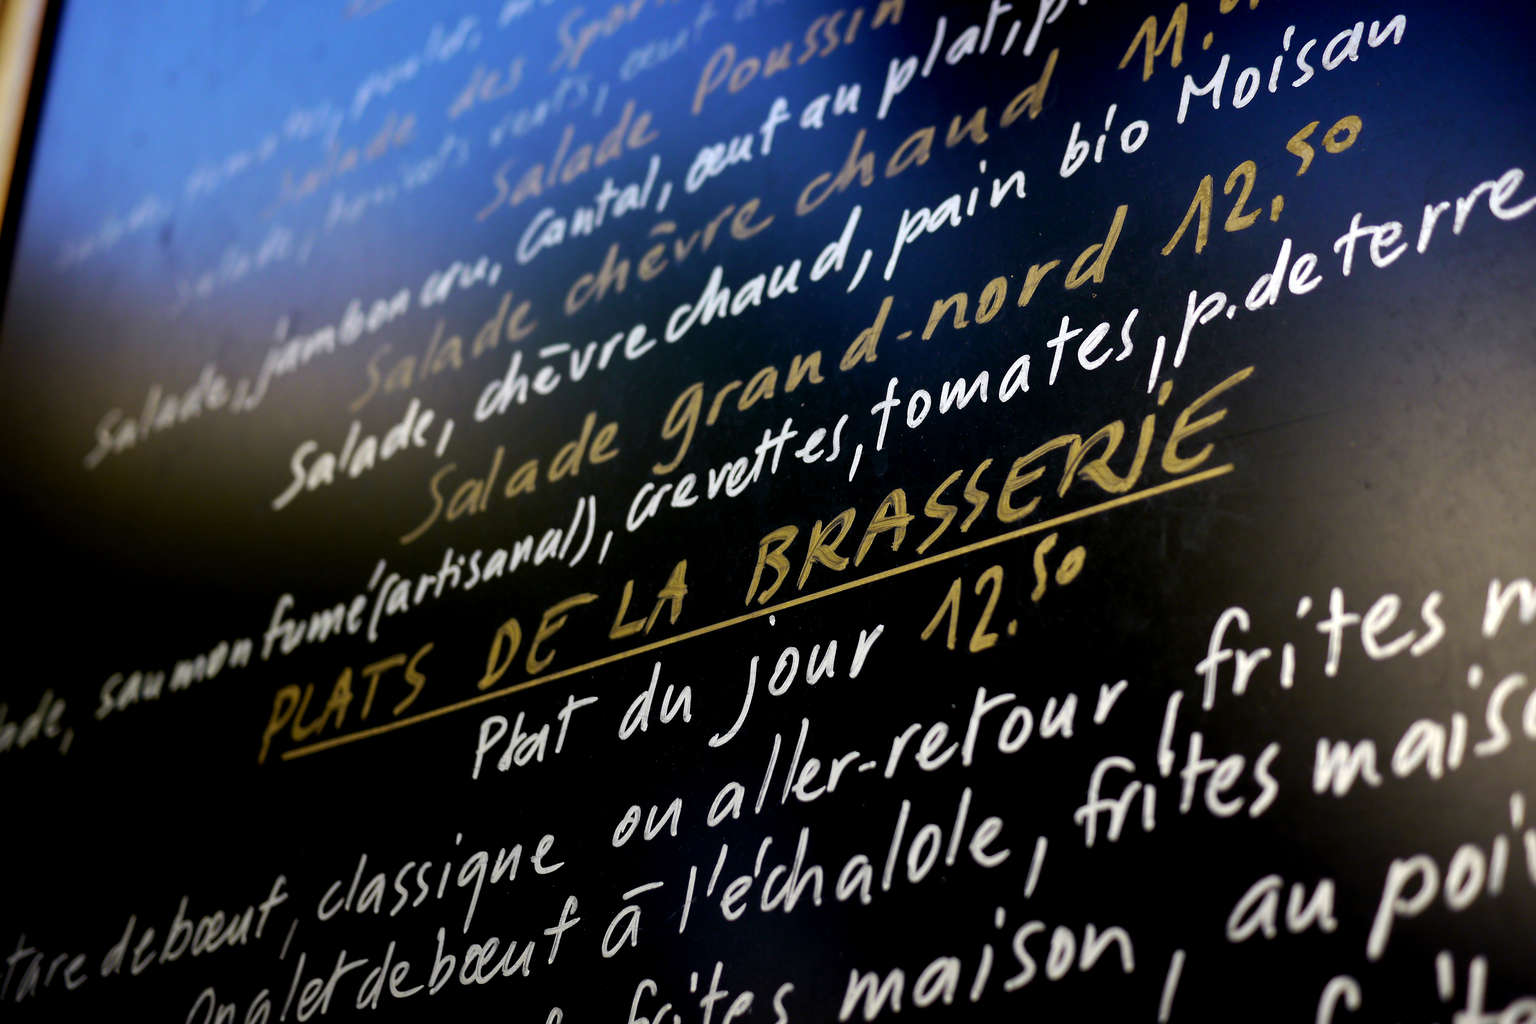 Salade des
Salade Poussin 11.
Salade, jambon cru, Cantal, œuf au plat, p.
Salade chēvre chaud
Salade, chēvre chaud, pain bio Moisan
Salade grand-nord 12.50
saumon fumé (artisanal), crevettes, tomates, p. de terre
PLATS DE LA BRASSERIE
Plat du jour 12.50
tare de bœuf, classique ou aller-retour, frites
Onglet de bœuf ā l'échalole, frites maiso
frites maison, au poi